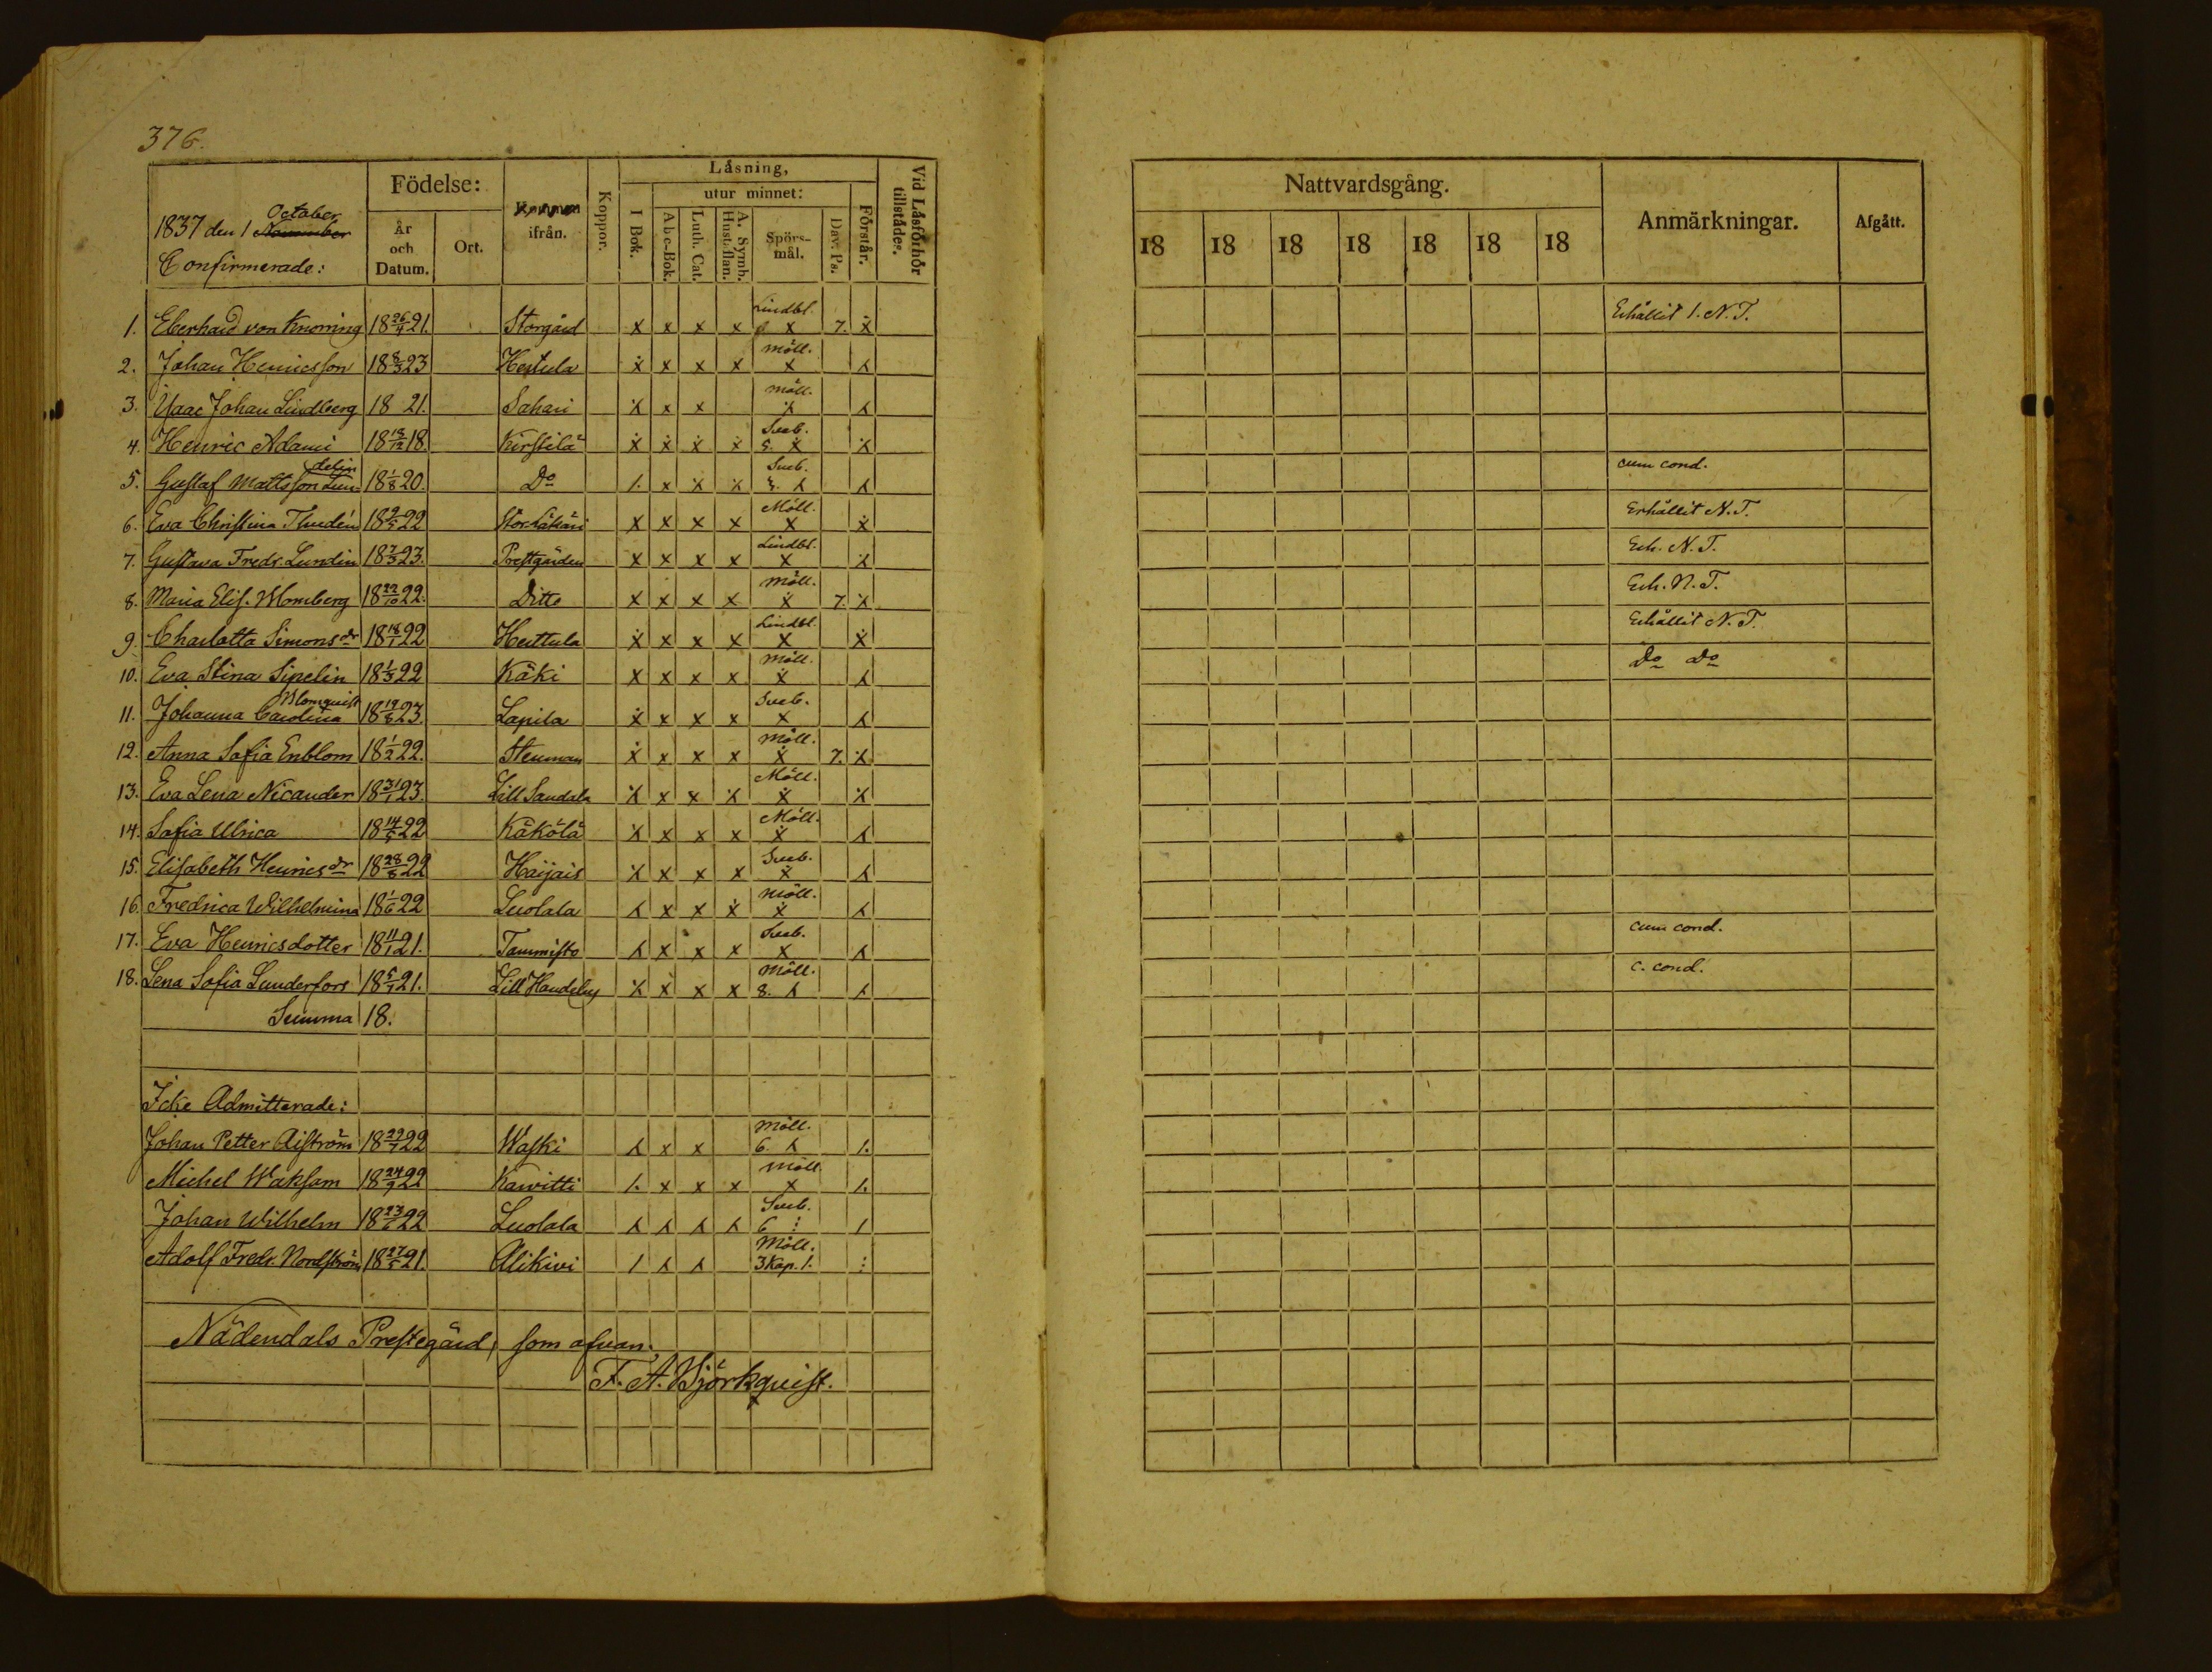 376.
1837 den 1 October November
Confirmerade:
Födelse:
År och Datum.
Ort.
Kommen ifrån.
Koppor.
Låsning,
utur minnet:
I Bok.
A b c-Bok.
Luth. Cat.
A. Symb. Hust. flan.
Spörs-mål.
Dav. Ps.
Förstår.
Vid Låsförhör tillstädes.
Nattvardsgång.
18 18 18 18 18 18 18
Anmärkningar.
Afgått.
1. Eberhard von Knorring 18 26/4 21. Storgård x x x x Lindbl. x 7. x Erhållit 1. N. T.
2. Johan Henricsson 18 8/3 23 Hertula x x x x Möll. x
3. Isaac Johan Lindberg 18 21. Sahari x x Möll.
4. Henric Adami 18 18/12 18. Kirstilä x x x x Sveb. 5. x
5. Gustaf Mattsson Lundelin 18 1/8 20. Do Sveb. cum cond.
6. Eva Christina Thudén 18 9/5 22 Stor x x x x Möll. x x Erhållit N. T.
7. Gustava Fredr. Lundin 18 7/3 23. Prestgården x x x x Lindbl. x Erh. N. T.
8. Maria Elis. Blomberg 18 22/10 22. Ditto x x x x Möll. x 7. Erh. N. T.
9. Charlotta Simonsdr 18 18/1 22 Herttula x x x x Lindbl. x x Erhållit N. T.
10. Eva Stina Sipelin 18 1/3 22 Käki x x x x Möll. x Do Do
11. Johanna Carolina Blomquist 18 19/8 23. Lapila x x x x Sveb. x
12. Anna Sofia Enblom 18 1/2 22. Stenman x x x x Möll. x 7.
13. Eva Lena Nicander 18 31/1 23. Lill Sandala x x Möll. x
14. Sofia Ulrica 18 14/5 22 Käkölä x x x Möll. x
15. Elisabeth Henricsdr 18 28/8 22 Haijais x x x Sveb. x
16. Fredrica Wilhelmina 18 1/6 22 Luolala x x x Möll. x
17. Eva Henricsdotter 18 11/1 21. Tammisto x x x Sveb. x cum cond.
18. Lena Sofia Lunderfors 18 5/1 21. Lill Handeby x x x Möll. 8. c. cond.
Summa 18.
Icke Admitterade:
Johan Petter Aiström 18 29/7 22 Waski x x Möll. 6. 1.
Michel Waksam 18 24/9 22 Karvitti 1. x x x Möll. x 1.
Johan Wilhelm 18 23/6 22 Luolala Sveb. 6
Adolf Fredr. Nordström 18 27/5 21. Alikivi Möll. 3 Kap. 1.
Nådendals Prestegård, som ofvan.
F. A. Björkquist.